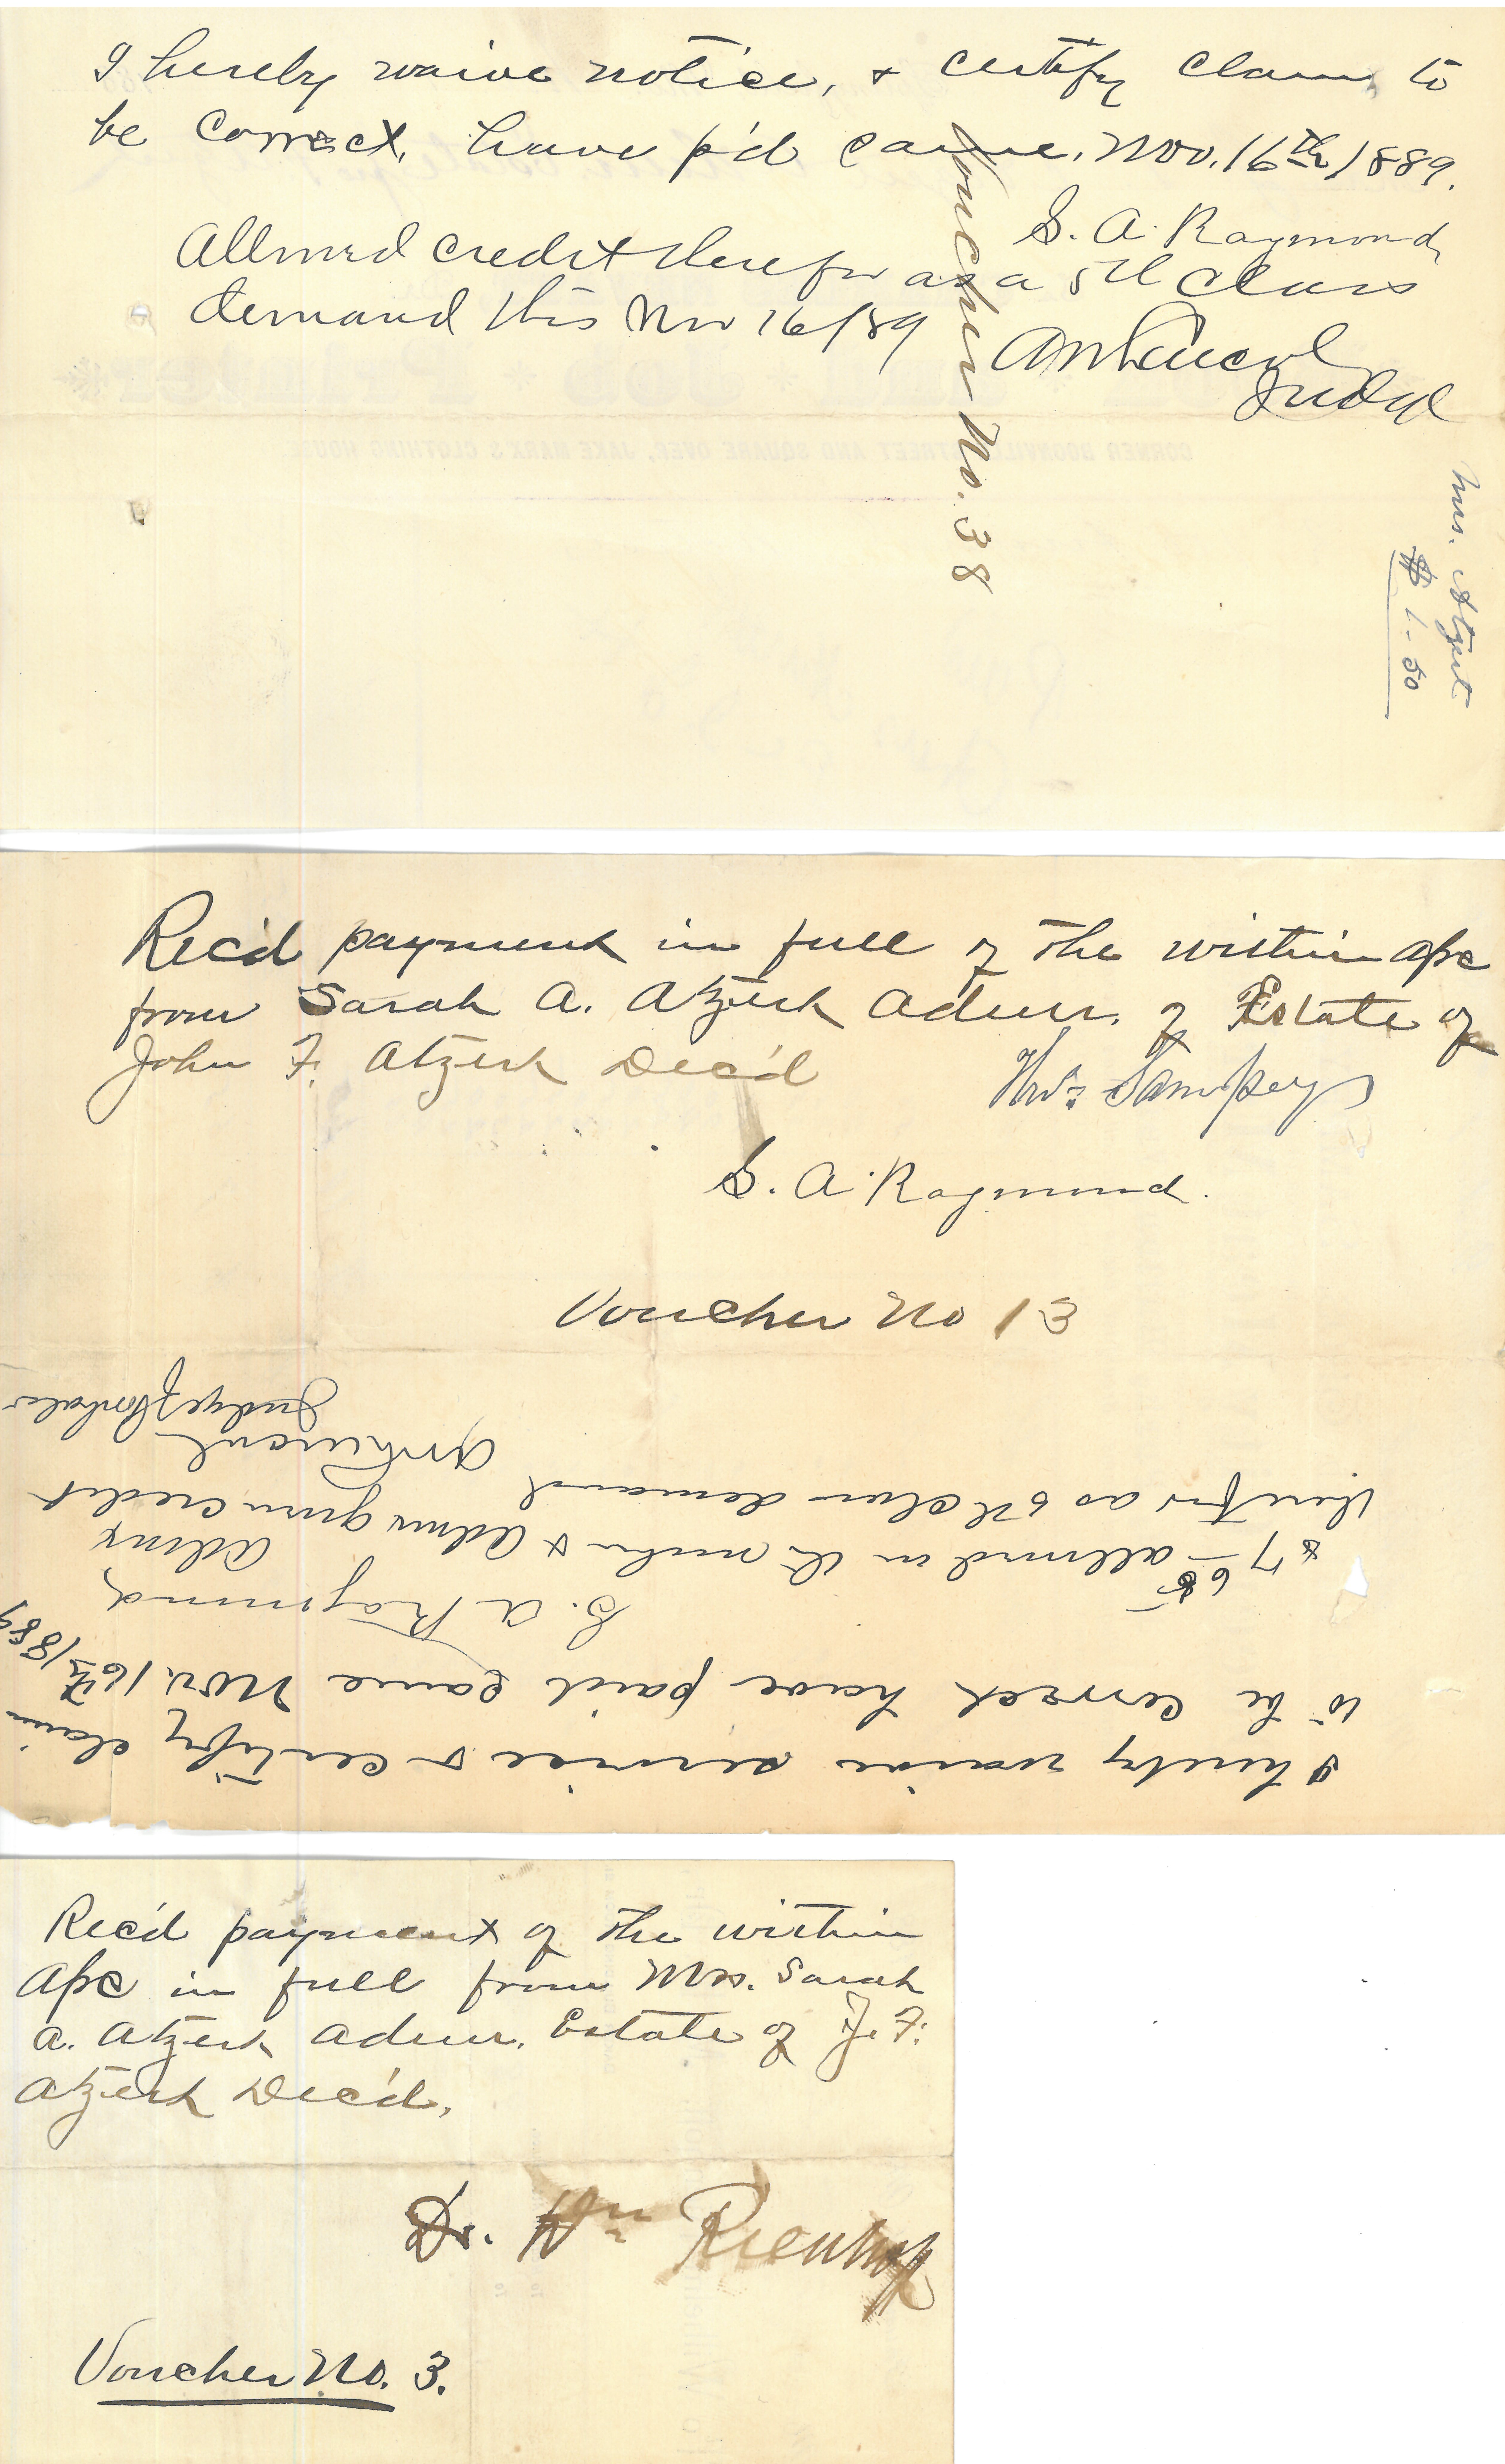 I hereby waive notice, & certify claim to
be correct, have p'd same. Nov. 16th 1889.
S. A. Raymond
Allowed credit therefor as a 5th class
demand this Nov 16/89
Judge
Voucher No. 38
Mrs. Atzert
$ 1.50
CORNER BOONVILLE STREET AND SQUARE OVER, JAKE MARX'S CLOTHING HOUSE
Rec'd payment in full of the within a/c
from Sarah A. Atzert Admr. of Estate of
John F. Atzert Dec'd
Sampey
S. A. Raymond.
Voucher No 13
I hereby waive service & certify claim
to be correct have paid same Nov. 16th 1889
S. A. Raymond,
Admx
$7 65 allowed in the within & Admr given credit
therefor as 5th class demand
Judge Probate
Rec'd payment of the within
a/c in full from Mrs. Sarah
A. Atzert Admr. Estate of J. F.
Atzert Dec'd.
Dr. Wm
Voucher No. 3.